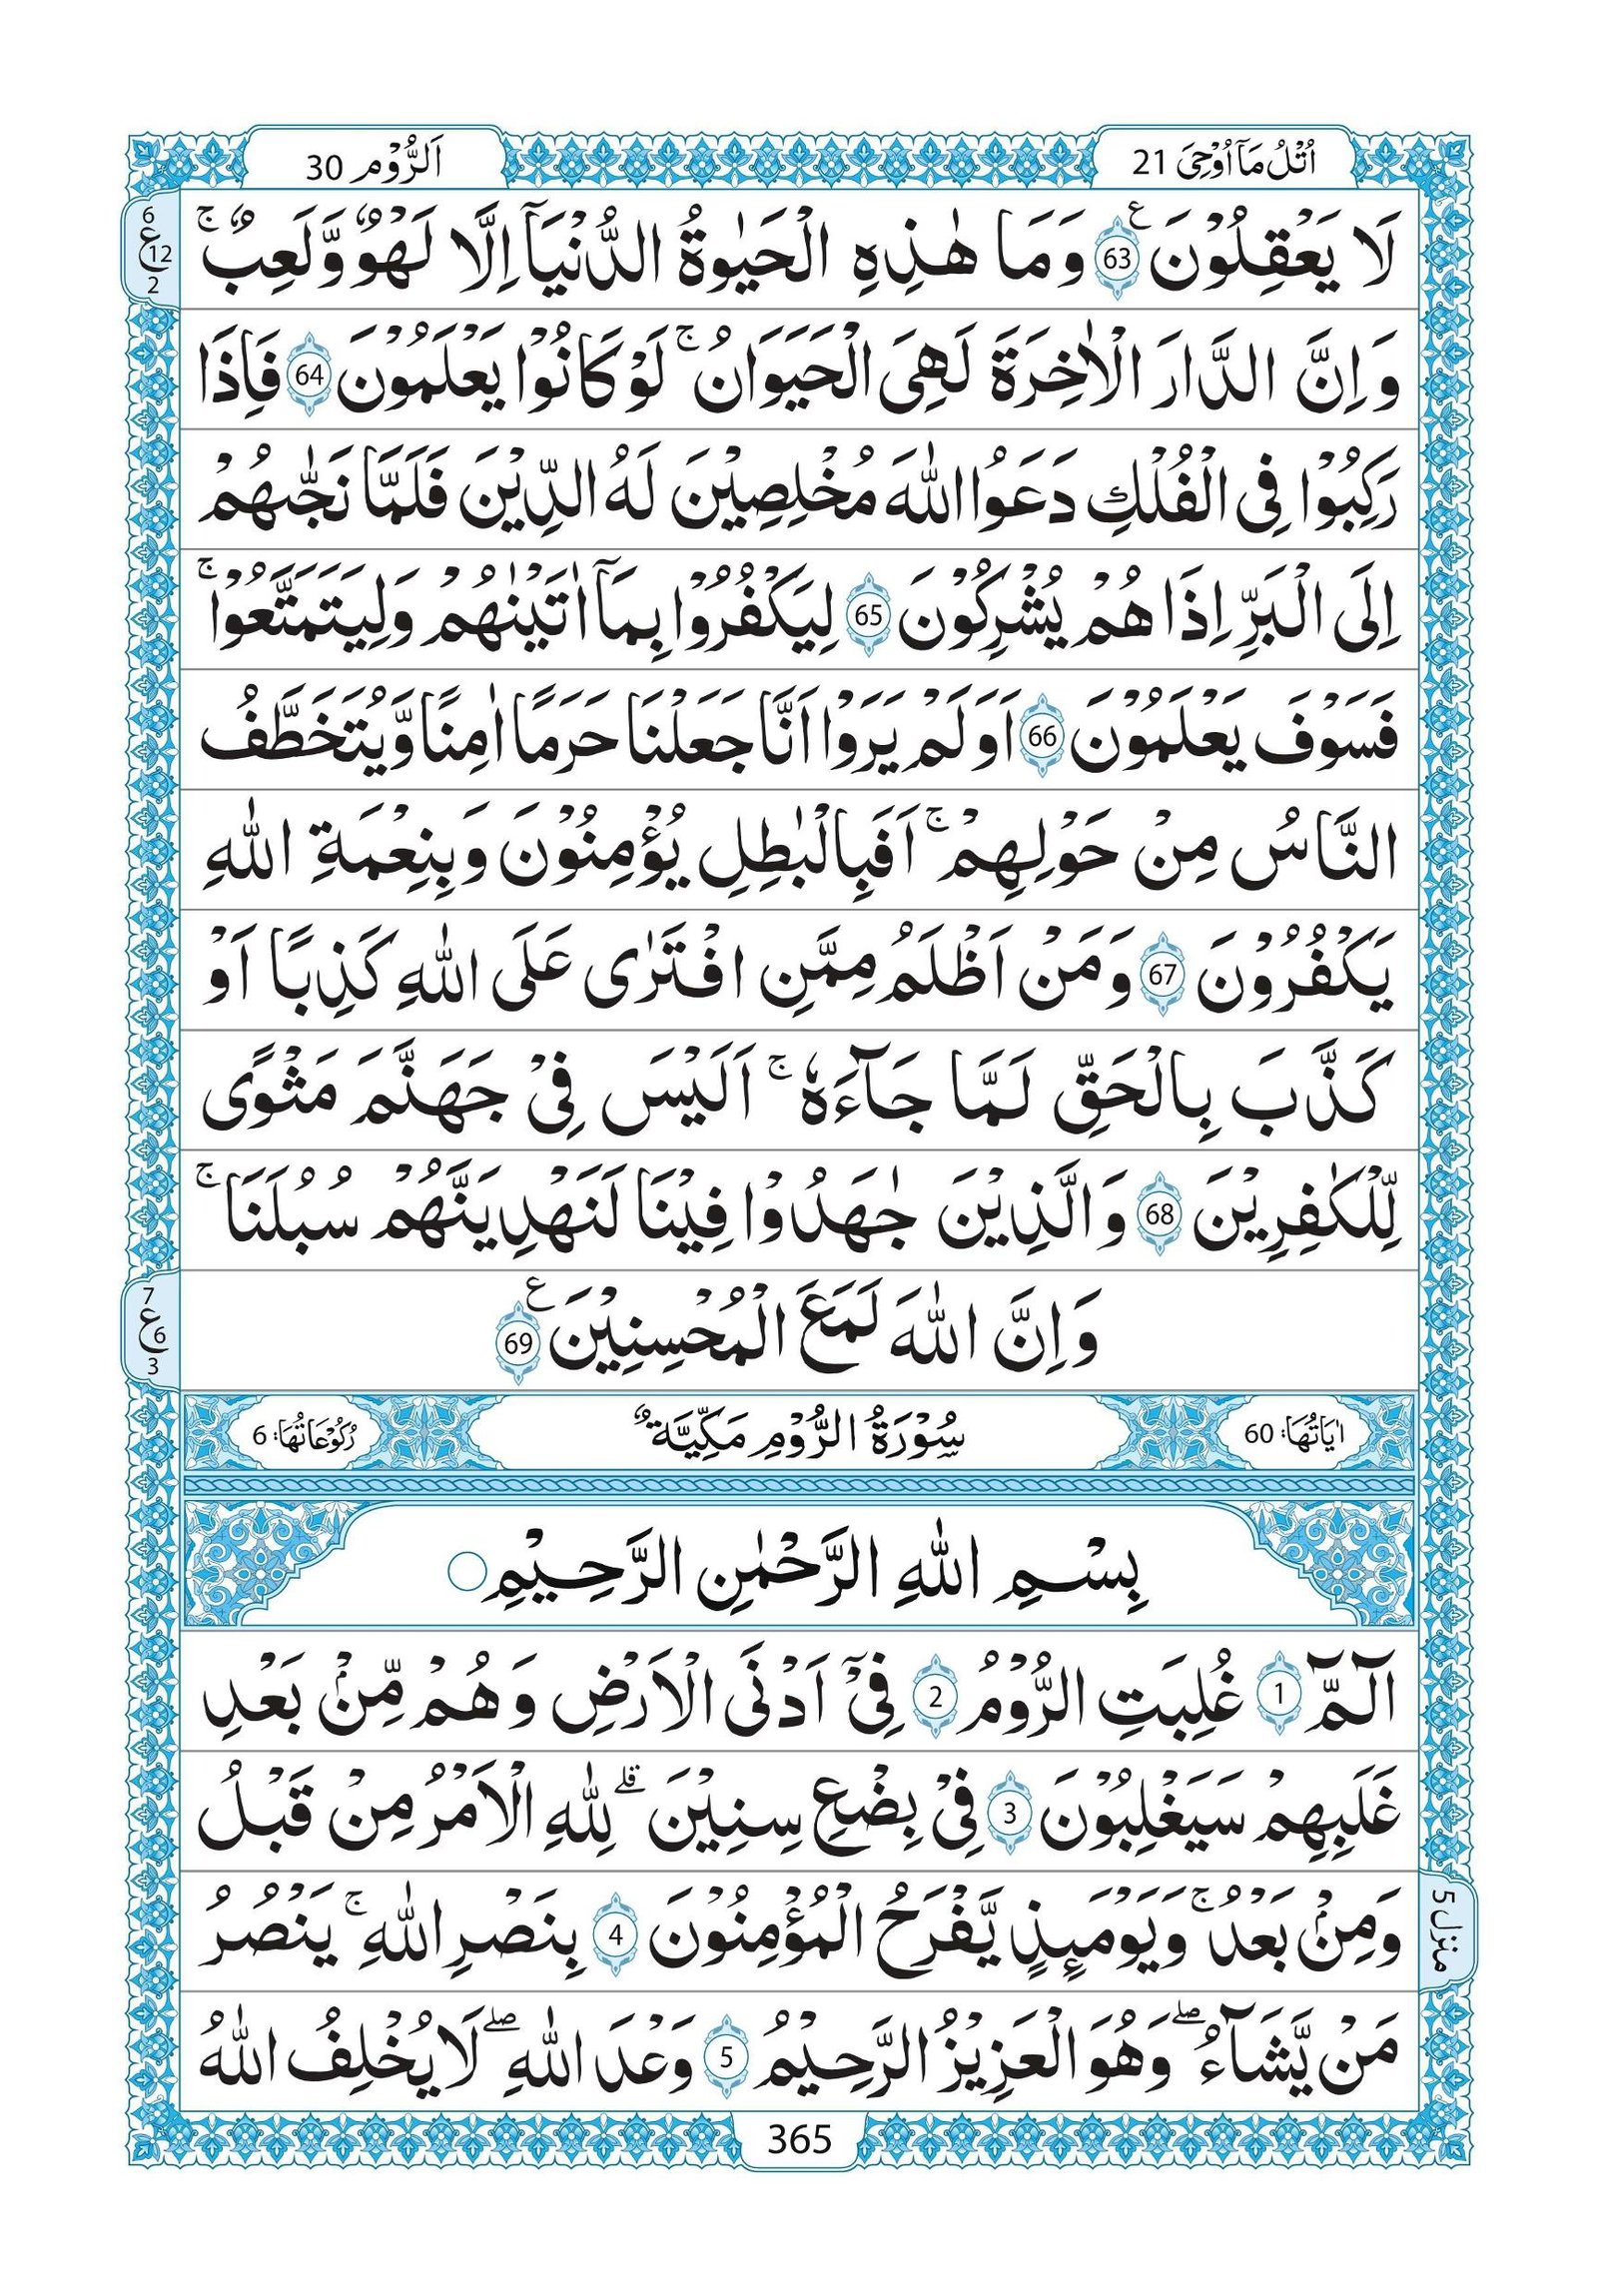 اُتْلُ مَاۤ اُوْحِیَ 21
اَلرُّوْم 30
لَا یَعْقِلُوْنَ 63 وَمَا هٰذِهِ الْحَیٰوةُ الدُّنْیَاۤ اِلَّا لَهْوٌ وَّلَعِبٌ ۚ
6 ع 12 2
وَاِنَّ الدَّارَ الْاٰخِرَةَ لَهِیَ الْحَیَوَانُ ۚ لَوْ كَانُوْا یَعْلَمُوْنَ 64 فَاِذَا
رَكِبُوْا فِی الْفُلْكِ دَعَوُا اللّٰهَ مُخْلِصِیْنَ لَهُ الدِّیْنَ فَلَمَّا نَجّٰىهُمْ
اِلَی الْبَرِّ اِذَا هُمْ یُشْرِكُوْنَ 65 لِیَكْفُرُوْا بِمَاۤ اٰتَیْنٰهُمْ وَلِیَتَمَتَّعُوْا ۚ
فَسَوْفَ یَعْلَمُوْنَ 66 اَوَلَمْ یَرَوْا اَنَّا جَعَلْنَا حَرَمًا اٰمِنًا وَّیُتَخَطَّفُ
النَّاسُ مِنْ حَوْلِهِمْ ۚ اَفَبِالْبٰطِلِ یُؤْمِنُوْنَ وَبِنِعْمَةِ اللّٰهِ
یَكْفُرُوْنَ 67 وَمَنْ اَظْلَمُ مِمَّنِ افْتَرٰی عَلَی اللّٰهِ كَذِبًا اَوْ
كَذَّبَ بِالْحَقِّ لَمَّا جَآءَهٗ ۚ اَلَیْسَ فِیْ جَهَنَّمَ مَثْوًی
لِّلْكٰفِرِیْنَ 68 وَالَّذِیْنَ جٰهَدُوْا فِیْنَا لَنَهْدِیَنَّهُمْ سُبُلَنَا ۚ
وَاِنَّ اللّٰهَ لَمَعَ الْمُحْسِنِیْنَ 69
7 ع 6 3
اٰیَاتُهَا: 60 سُوْرَةُ الرُّوْمِ مَكِّیَّةٌ رُكُوْعَاتُهَا: 6
بِسْمِ اللّٰهِ الرَّحْمٰنِ الرَّحِیْمِ
الٓمّٓ 1 غُلِبَتِ الرُّوْمُ 2 فِیْۤ اَدْنَی الْاَرْضِ وَهُمْ مِّنْۢ بَعْدِ
غَلَبِهِمْ سَیَغْلِبُوْنَ 3 فِیْ بِضْعِ سِنِیْنَ ۗ لِلّٰهِ الْاَمْرُ مِنْ قَبْلُ
وَمِنْۢ بَعْدُ ۚ وَیَوْمَىِٕذٍ یَّفْرَحُ الْمُؤْمِنُوْنَ 4 بِنَصْرِ اللّٰهِ ۚ یَنْصُرُ
منزل 5
مَنْ یَّشَآءُ ۖ وَهُوَ الْعَزِیْزُ الرَّحِیْمُ 5 وَعْدَ اللّٰهِ ۖ لَا یُخْلِفُ اللّٰهُ
365